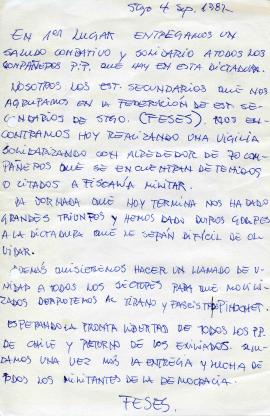 Stgo 4 Sep. 1987.
EN 1er LUGAR ENTREGAMOS UN
SALUDO COMBATIVO Y SOLIDARIO A TODOS LOS
COMPAÑEROS P.P. QUE HAY EN ESTA DICTADURA.
NOSOTROS LOS EST. SECUNDARIOS QUE NOS
AGRUPAMOS EN LA FEDERACIÓN DE EST. SE-
CUNDARIOS DE STGO. (FESES). NOS EN-
CONTRAMOS HOY REALIZANDO UNA VIGILIA
SOLIDARIZANDO CON ALREDEDOR DE 70 COM-
PAÑEROS QUE SE ENCUENTRAN DETENIDOS
O CITADOS A FISCALIA MILITAR.
LA JORNADA QUE HOY TERMINA NOS HA DADO
GRANDES TRIUNFOS Y HEMOS DADO DUROS GOLPES
A LA DICTADURA QUE LE SERÁN DIFÍCIL DE OL-
VIDAR.
ADEMÁS QUISIERAMOS HACER UN LLAMADO DE U-
NIDAD A TODOS LOS SECTORES PARA QUE MOVILI-
ZADOS DERROTEMOS AL TIRANO Y FASCISTA PINOCHET.
ESPERANDO LA PRONTA LIBERTAD DE TODOS LOS P.P.
DE CHILE Y RETORNO DE LOS EXILIADOS. SALU-
DAMOS UNA VEZ MÁS LA ENTREGA Y LUCHA DE
TODOS LOS MILITANTES DE LA DEMOCRACIA.
FESES.